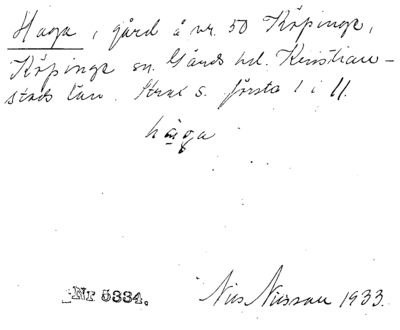 Haga, gård å nr. 50 Köpinge,
Köpinge sn. Gärds hd. Kristian-
stads län. Strax s. första l i ll.
håga
Nr 5334.
Nils Nilsson 1933.